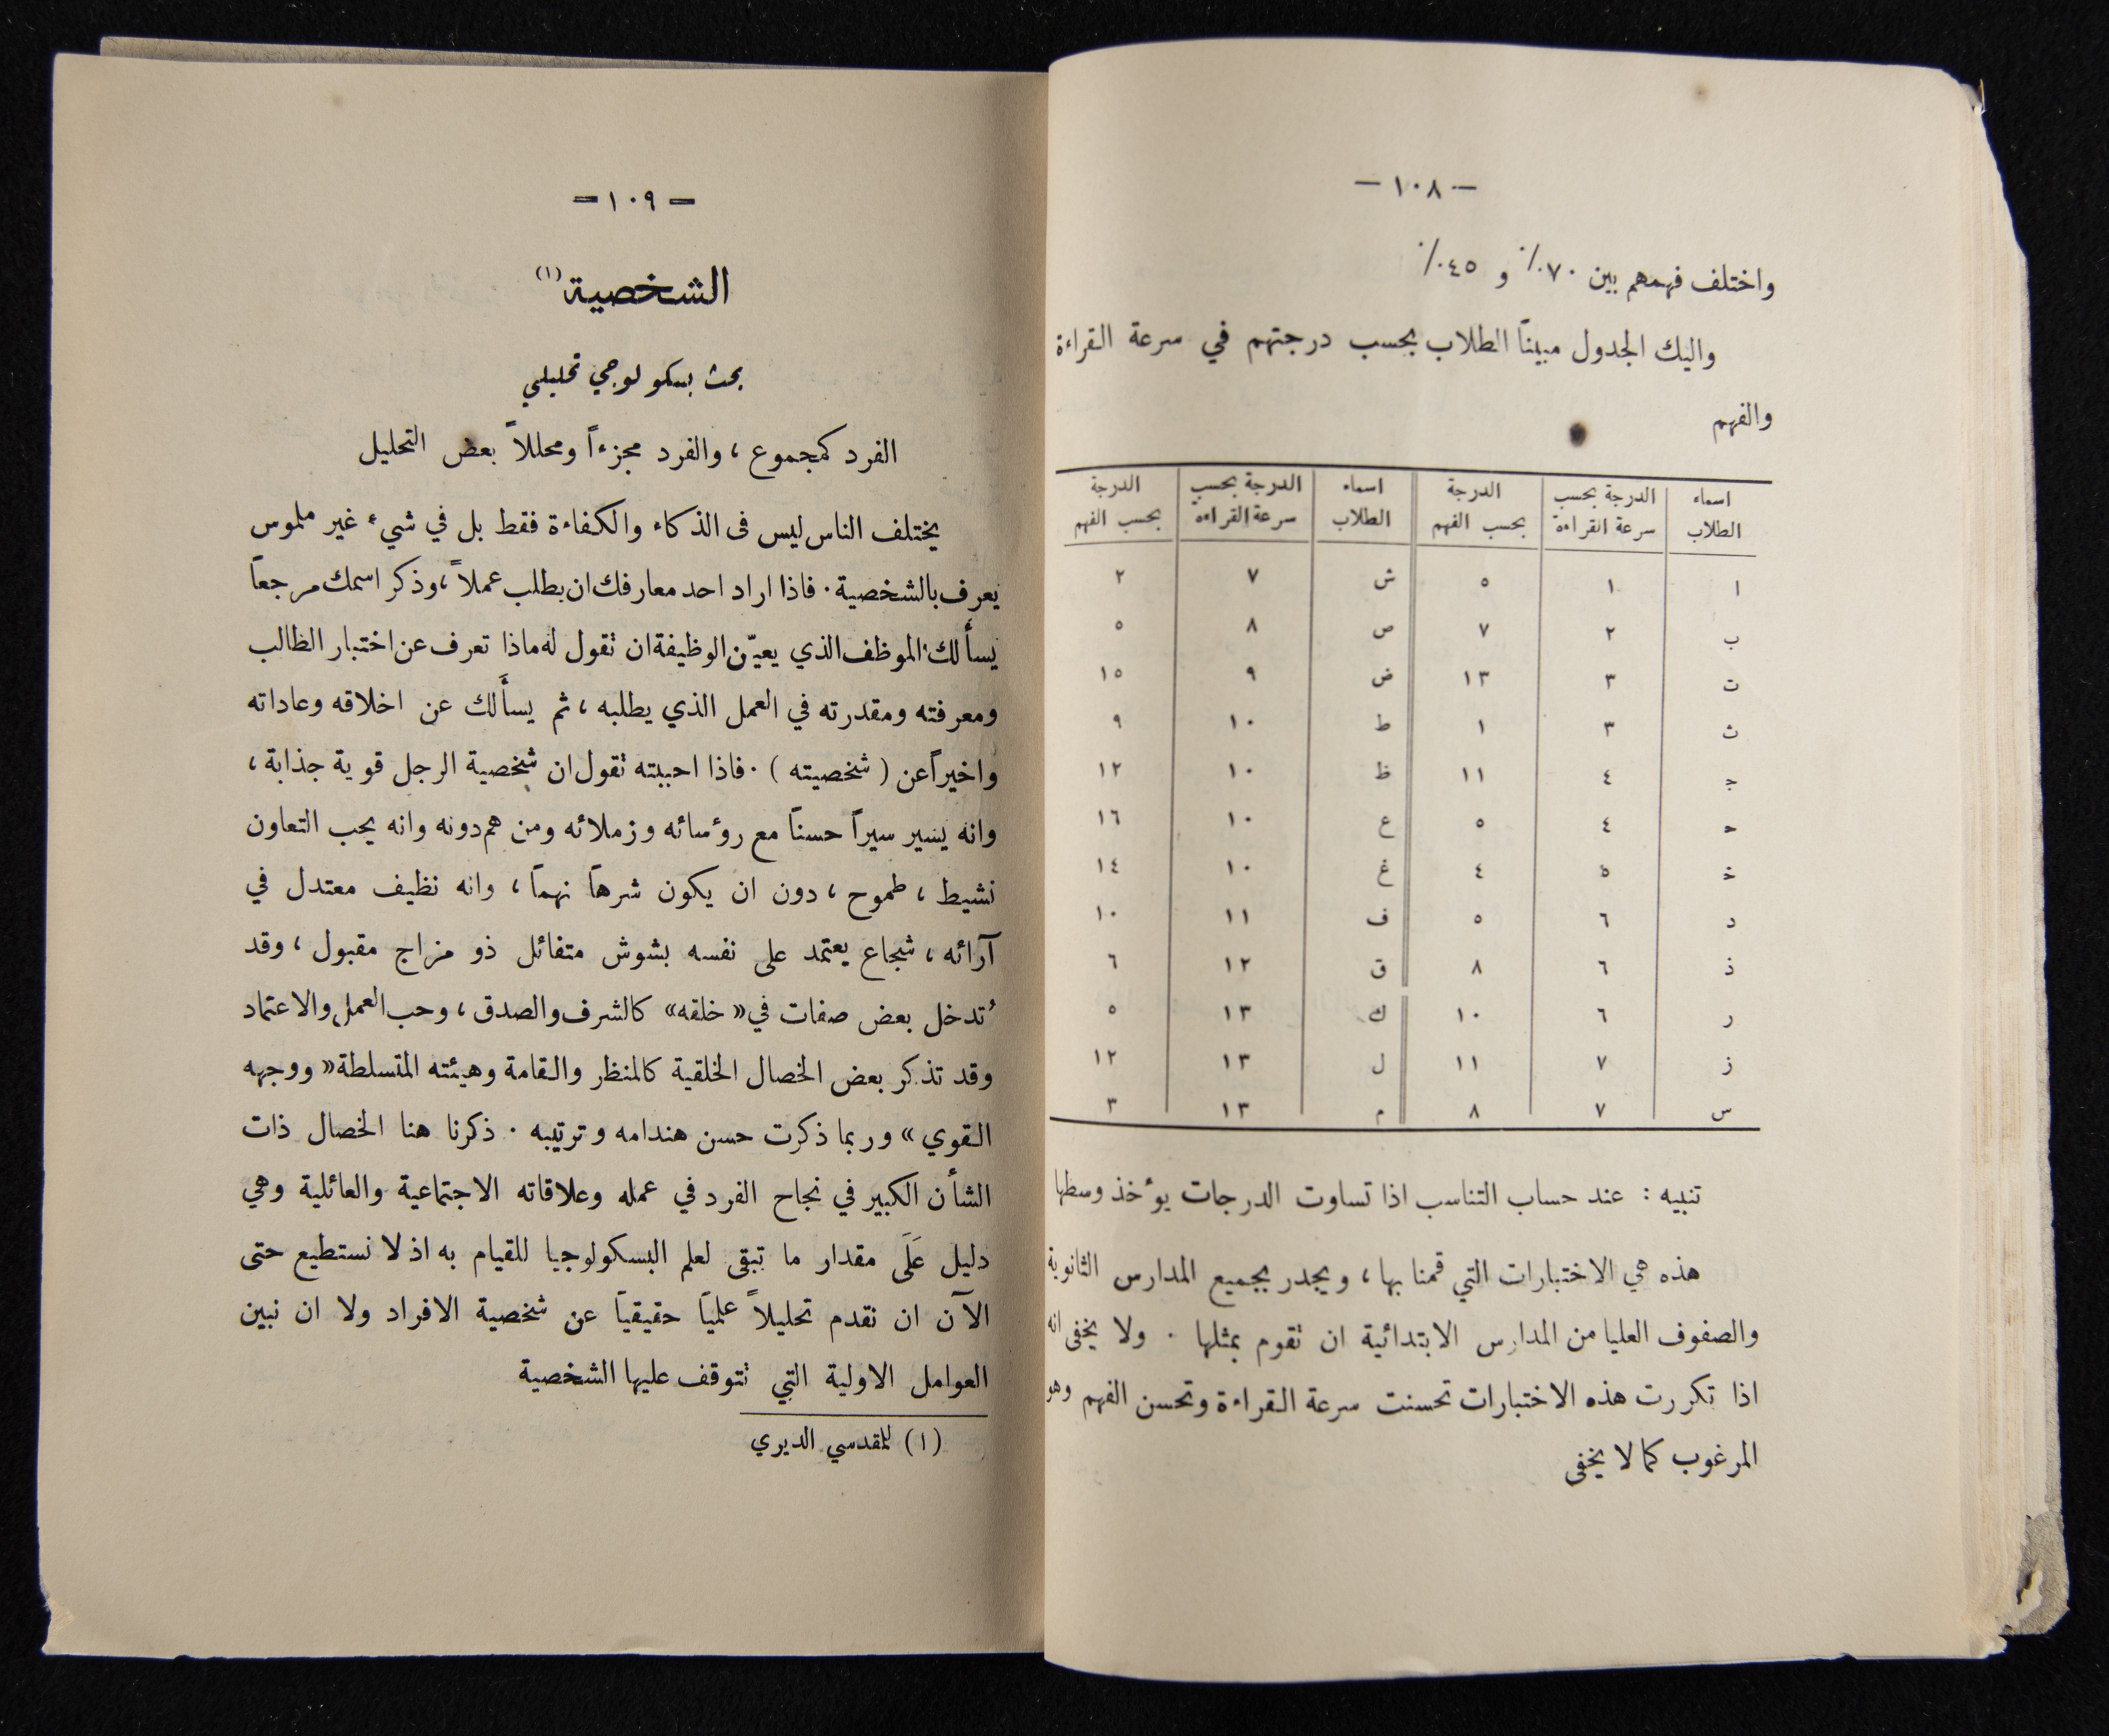 — ١٠٨ —
واختلف فهمهم بين ٧٠٪ و ٤٥٪
واليك الجدول مبيناً الطلاب بحسب درجتهم في سرعة القراءة
والفهم
اسماء الطلاب | الدرجة بحسب سرعة القراءة | الدرجة بحسب الفهم | اسماء الطلاب | الدرجة بحسب سرعة القراءة | الدرجة بحسب الفهم
ا ١ ٥ ش ٧ ٢
ب ٢ ٧ ص ٨ ٥
ت ٣ ١٣ ض ٩ ١٥
ث ٣ ١ ط ١٠ ٩
ج ٤ ١١ ظ ١٠ ١٢
ح ٤ ٥ ع ١٠ ١٦
خ ٥ ٤ غ ١٠ ١٤
د ٦ ٥ ف ١١ ١٠
ذ ٦ ٨ ق ١٢ ٦
ر ٦ ١٠ ك ١٣ ٥
ز ٧ ١١ ل ١٣ ١٢
س ٧ ٨ م ١٣ ٣
تنبيه : عند حساب التناسب اذا تساوت الدرجات يوٴخذ وسطها
هذه هي الاختبارات التي قمنا بها ، ويجدر بجميع المدارس الثانوية
والصفوف العليا من المدارس الابتدائية ان تقوم بمثلها . ولا يخفى انه
اذا تكررت هذه الاختبارات تحسنت سرعة القراءة وتحسن الفهم وهو
المرغوب كما لا يخفى
— ١٠٩ —
الشخصية (١)
بحث بسكولوجي تحليلي
الفرد كمجموع ، والفرد مجزءاً ومحللاً بعض التحليل
يختلف الناس ليس فى الذكاء والكفاءة فقط بل في شيء غير ملموس
يعرف بالشخصية . فاذا اراد احد معارفك ان يطلب عملاً ، وذكر اسمك مرجعاً
يسألك الموظف الذي يعيّن الوظيفة ان تقول له ماذا تعرف عن اختبار الطالب
ومعرفته ومقدرته في العمل الذي يطلبه ، ثم يسأَلك عن اخلاقه وعاداته
واخيراً عن ( شخصيته ) . فاذا احببته تقول ان شخصية الرجل قوية جذابة ،
وانه يسير سيراً حسناً مع روٴسائه وزملائه ومن هم دونه وانه يحب التعاون
نشيط ، طموح ، دون ان يكون شرهاً نهماً ، وانه نظيف معتدل في
آرائه ، شجاع يعتمد على نفسه بشوش متفائل ذو مزاج مقبول ، وقد
تُدخل بعض صفات في « خلقه » كالشرف والصدق ، وحب العمل والاعتماد
وقد تذكر بعض الخصال الخلقية كالمنظر والقامة وهيئته المتسلطة « ووجهه
القوي » وربما ذكرت حسن هندامه وترتيبه . ذكرنا هنا الخصال ذات
الشأن الكبير في نجاح الفرد في عمله وعلاقاته الاجتماعية والعائلية وهي
دليل عَلَى مقدار ما تبقى لعلم البسكولوجيا للقيام به اذ لا نستطيع حتى
الآن ان نقدم تحليلاً علمياً حقيقياً عن شخصية الافراد ولا ان نبين
العوامل الاولية التي تتوقف عليها الشخصية
(١) للمقدسي الديري